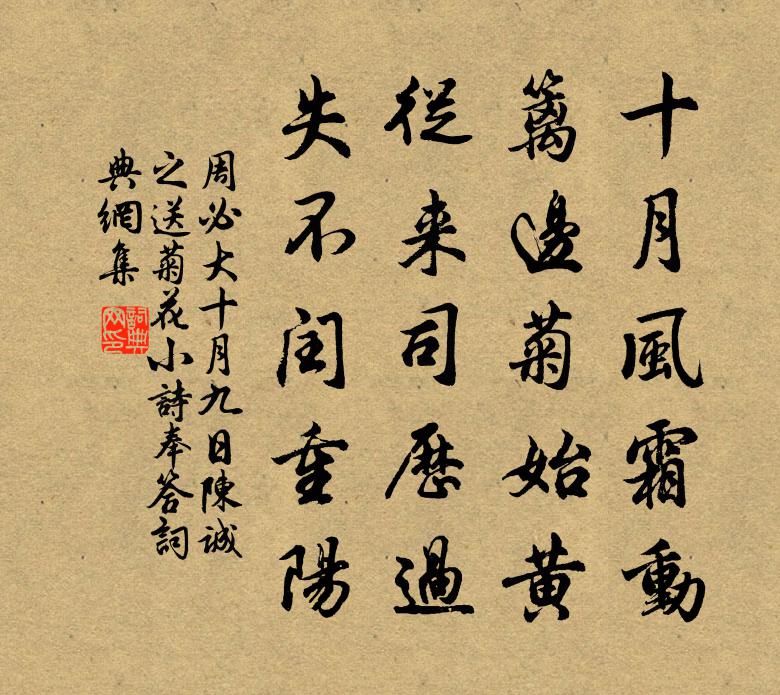 十月風霜動
籬邊菊始黄
從来司歷過
失不閏重陽
周必大十月九日陳誠
之送菊花小詩奉答詞
典網集
詞典网印